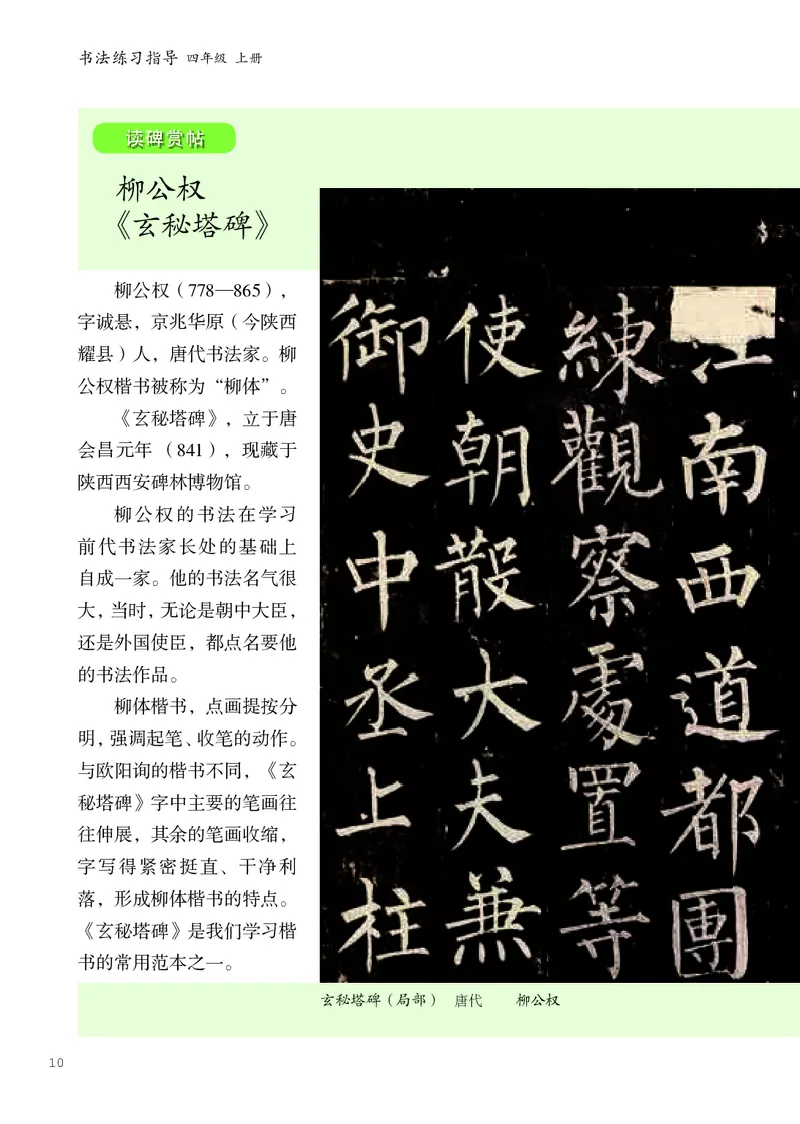 书法练习指导 四年级 上册
读碑赏帖
柳公权
《玄秘塔碑》
柳公权（778—865），
字诚悬，京兆华原（今陕西
耀县）人，唐代书法家。柳
公权楷书被称为“柳体”。
《玄秘塔碑》，立于唐
会昌元年（841），现藏于
陕西西安碑林博物馆。
柳公权的书法在学习
前代书法家长处的基础上
自成一家。他的书法名气很
大，当时，无论是朝中大臣，
还是外国使臣，都点名要他
的书法作品。
柳体楷书，点画提按分
明，强调起笔、收笔的动作。
与欧阳询的楷书不同，《玄
秘塔碑》字中主要的笔画往
往伸展，其余的笔画收缩，
字写得紧密挺直、干净利
落，形成柳体楷书的特点。
《玄秘塔碑》是我们学习楷
书的常用范本之一。
江南西道都團
練觀察處置等
使朝散大夫兼
御史中丞上柱
玄秘塔碑（局部） 唐代 柳公权
10